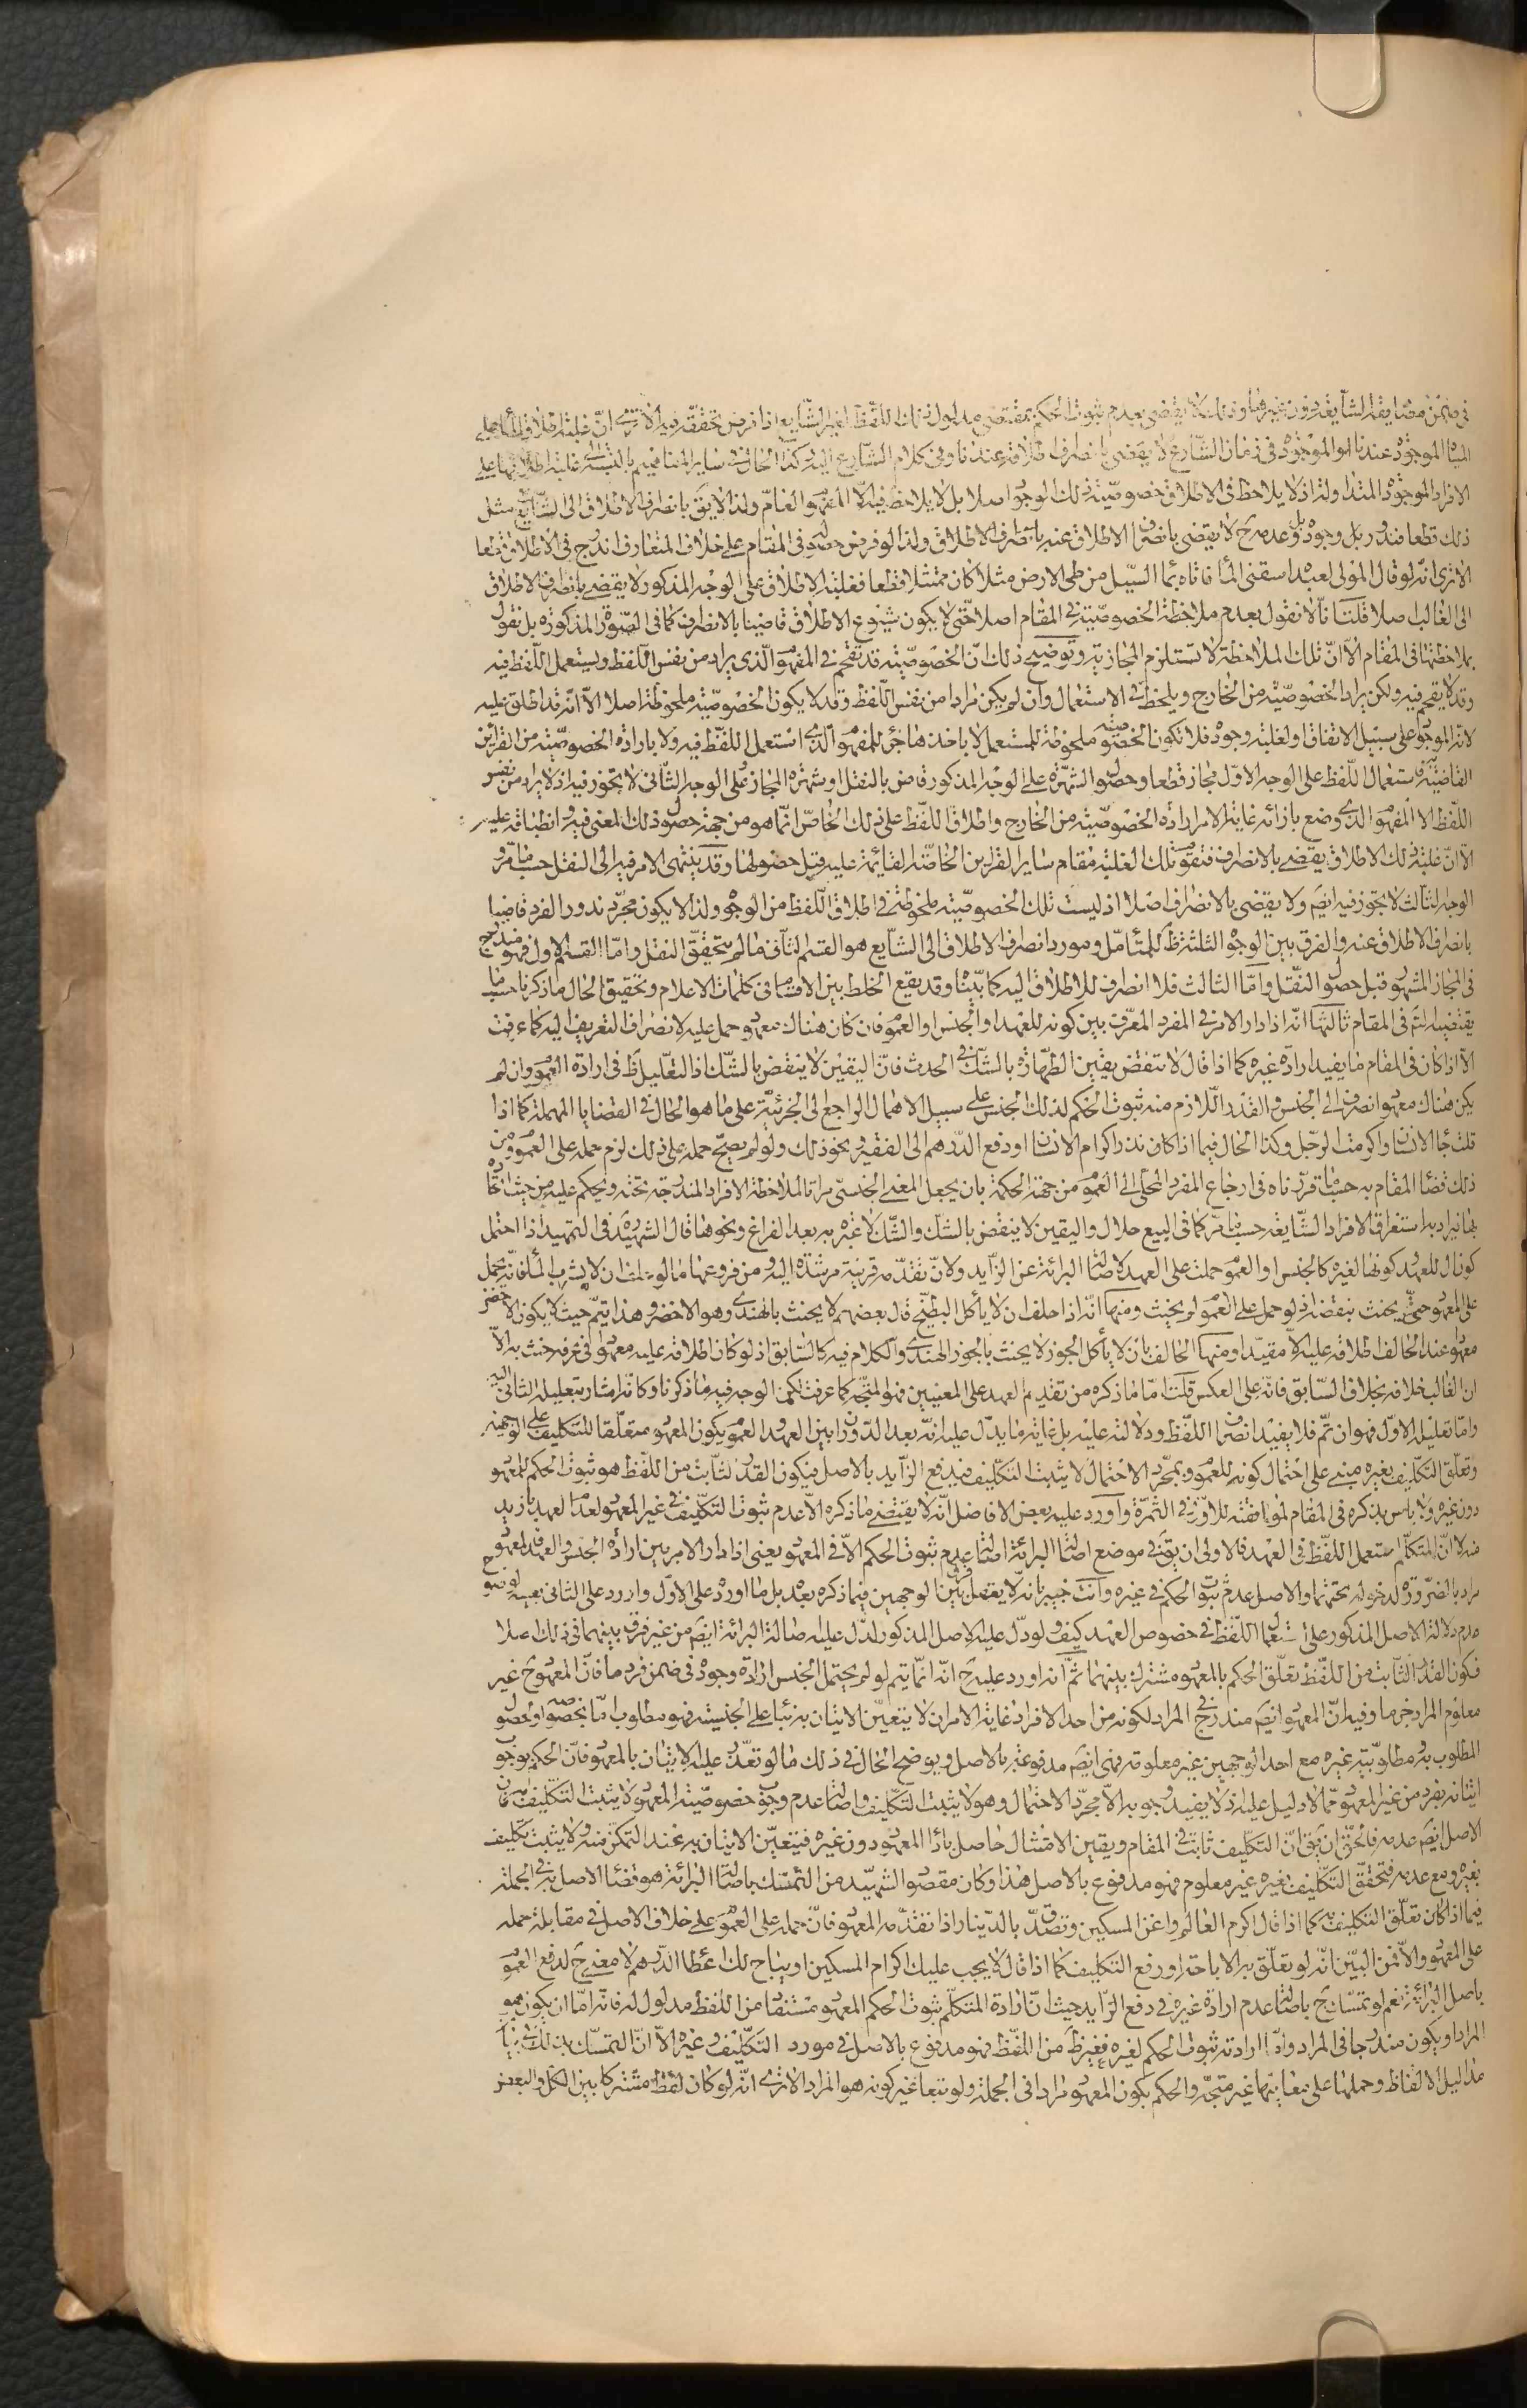 في ضمن مصاديقه الشايعة دون غيرها وذلك لا يقضي بعدم ثبوت الحكم بمقتضى مدلول ذلك اللفظ لغير الشايع اذا فرض تحققه فيه الا ترى ان غلبة اطلاق الماء على
المياه الموجودة عندنا او الموجودة في زمان الشارع لا يقضي بانصراف اطلاقه عندنا وفي كلام الشارع اليه وكذا الحال في ساير المفاهيم بالنسبة الى غلبة اطلاقها على
الافراد الموجودة المتداولة اذ لا يلاحظ في الاطلاق خصوصية ذلك الوجود اصلا بل لا يلاحظ فيه الا المفهوم العام ولذا لا يق بانصراف الاطلاق الى الشايع مثل
ذلك قطعا فندور بل وجوده بل وعدمه ح لا يقضي بانصراف الاطلاق عنه بانصراف الاطلاق ولذا لو فرض حصوله في المقام على خلاف المتعارف اندرج في الاطلاق قطعا
الا ترى انه لو قال المولى لعبده اسقني الماء فاتاه بماء السيل من طي الارض مثلا كان ممتثلا قطعا فغلبة الاطلاق على الوجه المذكور لا يقضي بانصراف الاطلاق
الى الغالب اصلا قلت انا لا نقول بعدم ملاحظة الخصوصية في المقام اصلا حتى لا يكون شيوع الاطلاق قاضيا بالانصراف كما في الصورة المذكورة بل نقول
بملاحظتها في المقام الا ان تلك الملاحظة لا تستلزم المجازية وتوضيح ذلك ان الخصوصية قد تقحم في المفهوم الذي يراد من نفس اللفظ ويستعمل اللفظ فيه
وقد لا يقحم فيه ولكن يراد الخصوصية من الخارج ويلحظ في الاستعمال وان لم يكن مرادا من نفس اللفظ وقد لا يكون الخصوصية ملحوظة اصلا الا انه قد اطلق عليه
لانه الموجود على سبيل الاتفاق او لغلبة وجوده فلا تكون الخصوصية ملحوظة للمستعمل لا باخذها جزء للمفهوم الذي استعمل اللفظ فيه ولا بارادة الخصوصية من القراين
القاضية به فاستعمال اللفظ على الوجه الاول مجاز قطعا وحصول الشهرة على الوجه المذكور قاض بالنقل او شهرة المجاز وعلى الوجه الثاني لا تجوز فيه اذ لا يراد من نفس
اللفظ الا المفهوم الذي وضع بازائه غاية الامر ارادة الخصوصية من الخارج واطلاق اللفظ على ذلك الخاص انما هو من جهة حصول ذلك المعنى فيه وانطباقه عليه
الا ان غلبة ذلك الاطلاق يقضي بالانصراف فتقوم تلك الغلبة مقام ساير القراين الخاصة القائمة عليه قبل حصولها وقد ينتهي الامر فيه الى النقل حسبما مر و
الوجه الثالث لا تجوز فيه ايضا ولا يقضي بالانصراف اصلا اذ ليست تلك الخصوصية ملحوظة في اطلاق اللفظ من الوجوه ولذا لا يكون مجرد ندور الفرد قاضيا
بانصراف الاطلاق عنه والفرق بين الوجوه الثلثة ظ للمتامل ومورد انصراف الاطلاق الى الشايع هو القسم الثاني ما لم يتحقق النقل واما القسم الاول فهو مندرج
في المجاز المشهور قبل حصول النقل واما الثالث فلا انصراف للاطلاق اليه كما بينا وقد يقع الخلط بين الاقسام في كلمات الاعلام وتحقيق الحال ما ذكرنا حسبما
يقتضيه التم في المقام ثالثها انه اذا دار الامر في المفرد المعرف بين كونه للعهد او الجنس او العموم فان كان هناك معهود حمل عليه لانصراف التعريف اليه كما عرفت
الا اذا كان في المقام ما يفيد ارادة غيره كما اذا قال لا تنقض يقين الطهارة بالشك في الحدث فان اليقين لا ينقض بالشك اذ التعليل ظ في ارادة العموم وان لم
يكن هناك معهود انصرف الى الجنس والقدر اللازم منه ثبوت الحكم لذلك الجنس على سبيل الاهمال الراجع الى الجزئية على ما هو الحال في القضايا المهملة كما اذا
قلت جاء الانسان او اكرمت الرجل وكذا الحال فيما اذا كان نذر اكرام الانسان او دفع الدرهم الى الفقير ونحو ذلك ولو لم يصح حمله على ذلك لزم حمله على العموم ومن
ذلك قضاء المقام به حسبما قررناه في ارجاع المفرد المحلى الى العموم من جهة الحكمة بان يجعل المعنى الجنسي مراتا لملاحظة الافراد المندرجة تحته ويحكم عليه من حيث اتحاده
بها فيراد به استغراق الافراد الشايعة حسبما مر كما في البيع حلال واليقين لا ينقض بالشك والشك لا عبرة به بعد الفراغ ونحوها قال الشهيد ره في التمهيد اذا احتمل
كون ال للعهد وكونها لغيره كالجنس او العموم حملت على العهد لاصالة البرائة عن الزايد ولان تقدمه قرينة مرشدة اليه ومن فروعها ما لو حلف ان لا يشرب الماء فانه يحمل
على المعهود حتى يحنث ببعضه اذ لو حمل على العموم لم يحنث ومنها انه اذا حلف ان لا يأكل البطيخ قال بعضهم لا يحنث بالهندي وهو الاخضر وهذا يتم حيث لا يكون الاخضر
معهودا عند الحالف اطلاقه عليه الا مقيدا ومنها الحالف بان لا يأكل الجوز لا يحنث بالجوز الهندي والكلام فيه كالسابق اذ لو كان اطلاقه عليه معهودا في عرفه حنث به الا
ان الغالب خلافه بخلاف السابق فانه على العكس قلت اما ما ذكره من تقديم العهد على المعنيين فهو المتجه كما عرفت لكن الوجه فيه ما ذكرنا وكانه اشار بتعليله الثاني اليه
واما تعليله الاول فهو ان تم فلا يفيد انصراف اللفظ ودلالته عليه بل غاية ما يدل عليه انه بعد الدوران بين العهد والعموم يكون المعهود متعلقا للتكليف على الوجهين
وتعلق التكليف بغيره مبني على احتمال كونه للعموم وبمجرد الاحتمال لا يثبت التكليف فيدفع الزايد بالاصل فيكون القدر الثابت من اللفظ هو ثبوت الحكم للمعهود
دون غيره ولا باس بذكره في المقام لموافقته للاول في الثمرة واورد عليه بعض الافاضل انه لا يقتضي ما ذكره الا عدم ثبوت التكليف في غير المعهود لعدم العهد بازيد
منه لا ان المتكلم استعمل اللفظ في العهد فالاولى ان يق في موضع اصالة البرائة اصالة عدم ثبوت الحكم الا في المعهود يعني اذا دار الامر بين ارادة الجنس والعهد فالمعهود
مراد بالضرورة لدخوله تحتهما والاصل عدم ثبوت الحكم في غيره وانت خبير بانه لا يعقل فرق بين الوجهين فيما ذكره بعد بل ما اورده على الاول وارد على الثاني بعينه لوضوح
عدم دلالة الاصل المذكور على استعمال اللفظ في خصوص العهد كيف ولو دل عليه الاصل المذكور لدل عليه اصالة البرائة ايضا من غير فرق بينهما في ذلك اصلا
فكون القدر الثابت من اللفظ تعلق الحكم بالمعهود مشترك بينهما ثم انه اورد عليه ح انه انما يتم لو لم يحتمل الجنس ارادة وجوده في ضمن فرد ما فان المعهود ح غير
معلوم المراد جزما وفيه ان المعهود ايضا مندرج في المراد لكونه من احد الافراد غاية الامر ان لا يتعين الاتيان به بناء على الجنسية فهو مطلوب اما بخصوصه او لحصول
المطلوب به ومطلوبية غيره مع احد الوجهين غير معلومة فهي ايضا مدفوعة بالاصل ويوضح الحال في ذلك ما لو تعذر عليه الاتيان بالمعهود فان الحكم بوجوب
اتيانه بفرد من غير المعهود مما لا دليل عليه اذ لا يفيد وجوبه الا مجرد الاحتمال وهو لا يثبت التكليف واصالة عدم وجوب خصوصية المعهود لا يثبت التكليف به فان
الاصل ايضا عدمه فالحق ان يق ان التكليف ثابت في المقام ويقين الامتثال حاصل باداء المعهود دون غيره فيتعين الاتيان به عند التمكن منه ولا يثبت تكليف
بغيره ومع عدمه فتحقق التكليف بغيره غير معلوم فهو مدفوع بالاصل هذا وكان مقصود الشهيد من التمسك باصالة البرائة هو قضاء الاصل به في الجملة
فيما اذا كان تعلق التكليف به كما اذا قال اكرم العالم واغن المسكين وتصدق بالدينار اذا تقدمه المعهود فان حمله على العموم على خلاف الاصل في مقابلة حمله
على المعهود والا فمن البين انه لو تعلق به الاباحة او رفع التكليف كما اذا قال لا يجب عليك اكرام المسكين او يباح لك اعطاء الدرهم لا معنى ح لدفع العموم
باصل البرائة نعم لو تمسك ح باصالة عدم ارادة غيره في دفع الزايد حيث ان ارادة المتكلم ثبوت الحكم المعهود مستفاد من اللفظ مدلول له فانه اما ان يكون هو
المراد او يكون مندرجا في المراد واما ارادته ثبوت الحكم لغيره فغير ظ من اللفظ فهو مدفوع بالاصل في مورد التكليف وغيره الا ان التمسك بذلك في بيان
مداليل الالفاظ وحملها على معانيها غير متجه والحكم بكون المعهود مرادا في الجملة ولو تبعا غير كونه هو المراد الا ترى انه لو كان لفظ مشتركا بين الكل والبعض